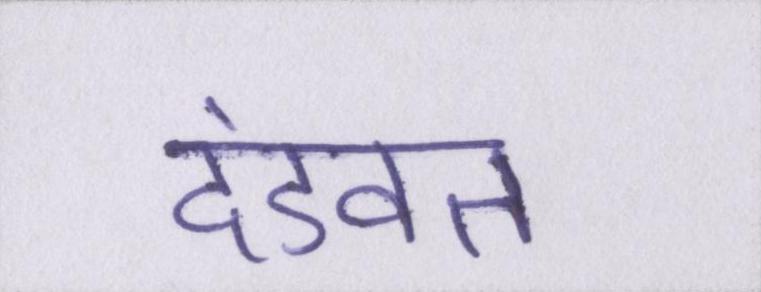 दंडवत